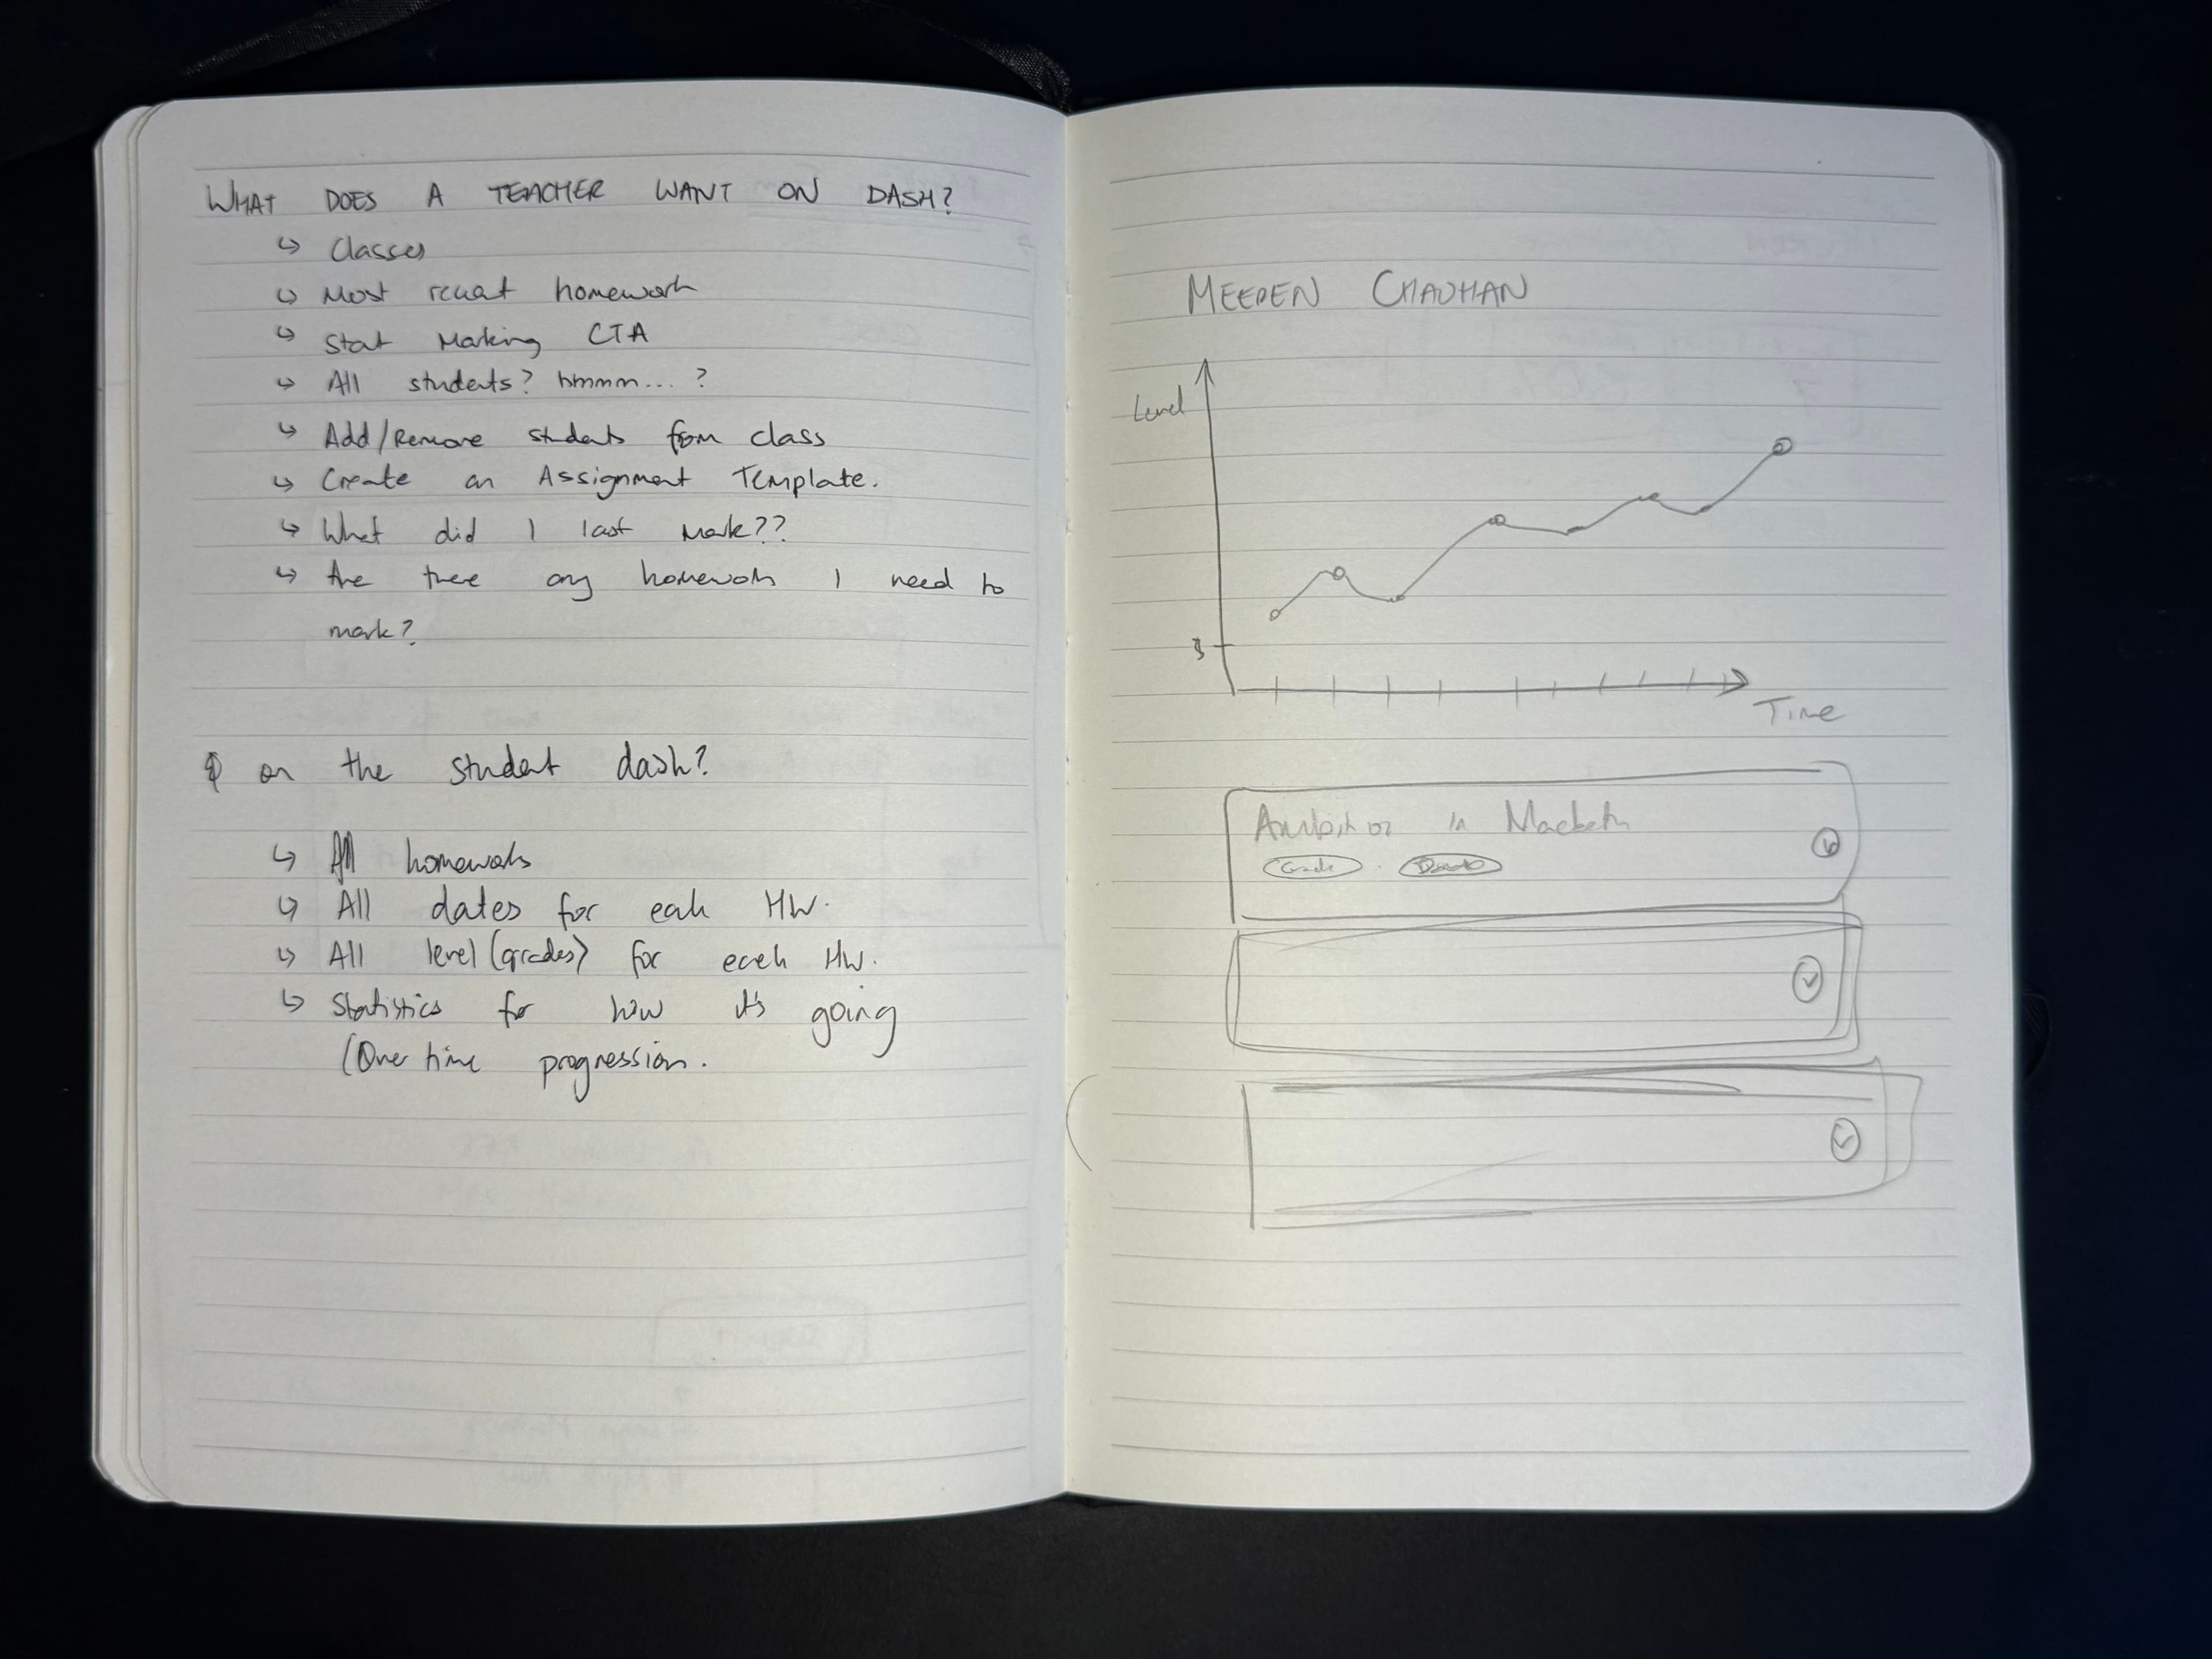 WHAT DOES A TEACHER WANT ON DASH?
↳ Classes
↳ Most recent homework
↳ Start Marking CTA
↳ All students? hmmm... ?
↳ Add/Remove students from class
↳ Create an Assignment Template.
↳ What did I last mark??
↳ Are there any homework I need to
mark?
on the student dash?
↳ All homework
↳ All dates for each HW.
↳ All level (grades) for each HW.
↳ Statistics for how it's going
(Over time progression.
MEEREN CHAUHAN
Level
Time
Ambition in Macbeth
Grade